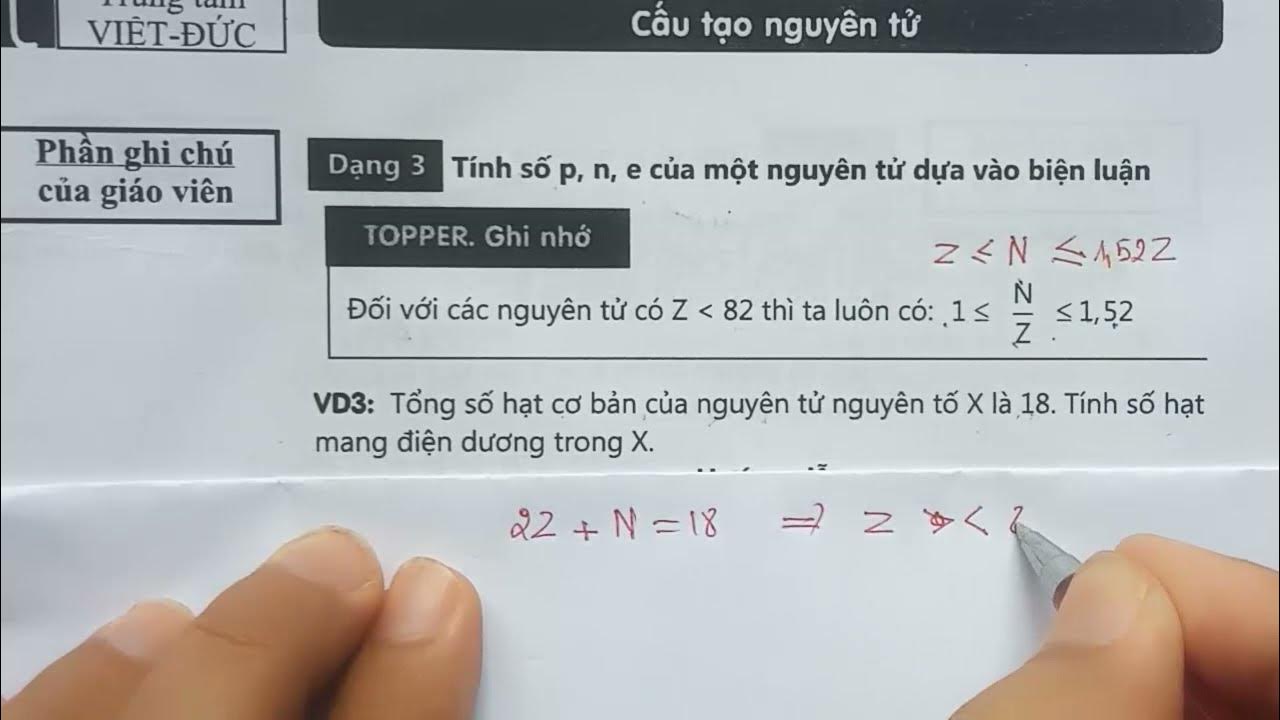 Trung tâm
VIỆT-ĐỨC
Cấu tạo nguyên tử
Phần ghi chú
của giáo viên
Dạng 3 Tính số p, n, e của một nguyên tử dựa vào biện luận
TOPPER. Ghi nhớ
Z ≤ N ≤ 1,52Z
Đối với các nguyên tử có Z < 82 thì ta luôn có: 1 ≤ N/Z ≤ 1,52
VD3: Tổng số hạt cơ bản của nguyên tử nguyên tố X là 18. Tính số hạt
mang điện dương trong X.
2Z + N = 18 ⇒ Z <